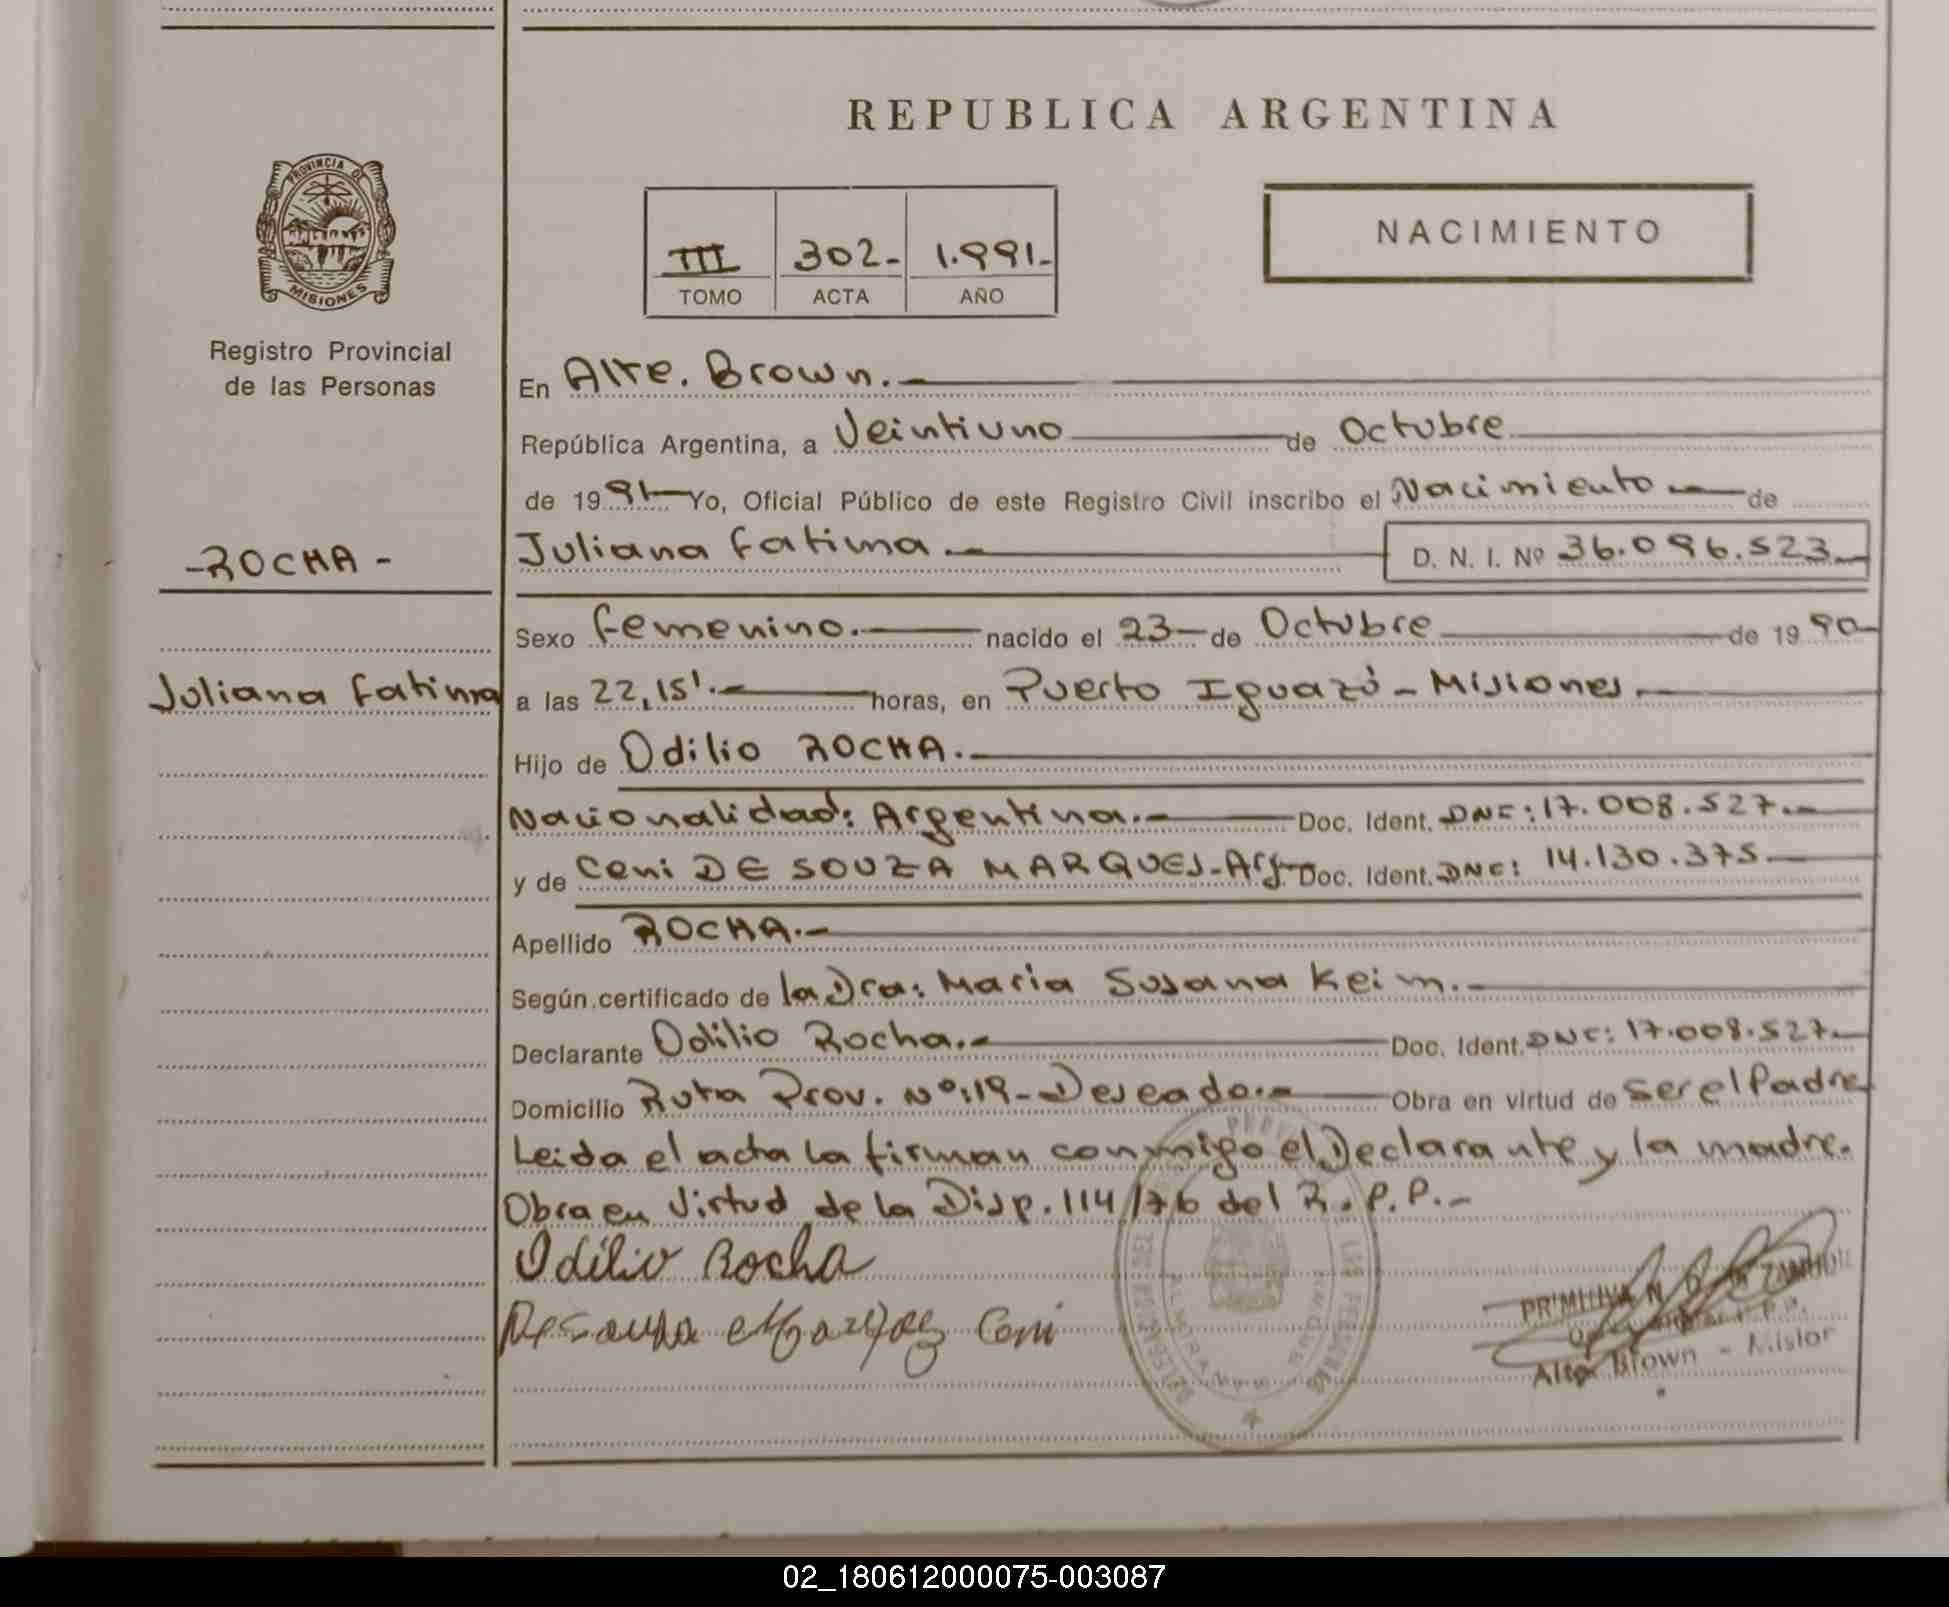 REPUBLICA ARGENTINA
PROVINCIA DE
MISIONES
Registro Provincial
de las Personas
III 302- 1.991-
TOMO ACTA AÑO
NACIMIENTO
En Alte. Brown.-
República Argentina, a Veintiuno de Octubre
de 1991 Yo, Oficial Público de este Registro Civil inscribo el Nacimiento de
-ROCHA-
Juliana Fatima.- D. N. I. Nº 36.096.523-
Sexo femenino.- nacido el 23- de Octubre de 1990-
Juliana Fatima
a las 22,15'.- horas, en Puerto Iguazú - Misiones.-
Hijo de Odilio ROCHA.-
Nacionalidad: Argentina.- Doc. Ident. DNI: 17.008.527.-
y de Ceni DE SOUZA MARQUES-Arg- Doc. Ident. DNI: 14.130.375.-
Apellido ROCHA.-
Según certificado de la Dra: Maria Susana Keim.-
Declarante Odilio Rocha.- Doc. Ident. DNI: 17.008.527.-
Domicilio Ruta Prov. Nº:19-Deseado.- Obra en virtud de ser el Padre
Leida el acta la firman conmigo el Declarante y la madre.
Obra en Virtud de la Disp. 114/76 del R.P.P.-
Odilio Rocha
Ceni
PRIMITIVA N.
Alte. Brown - Misior
02_180612000075-003087